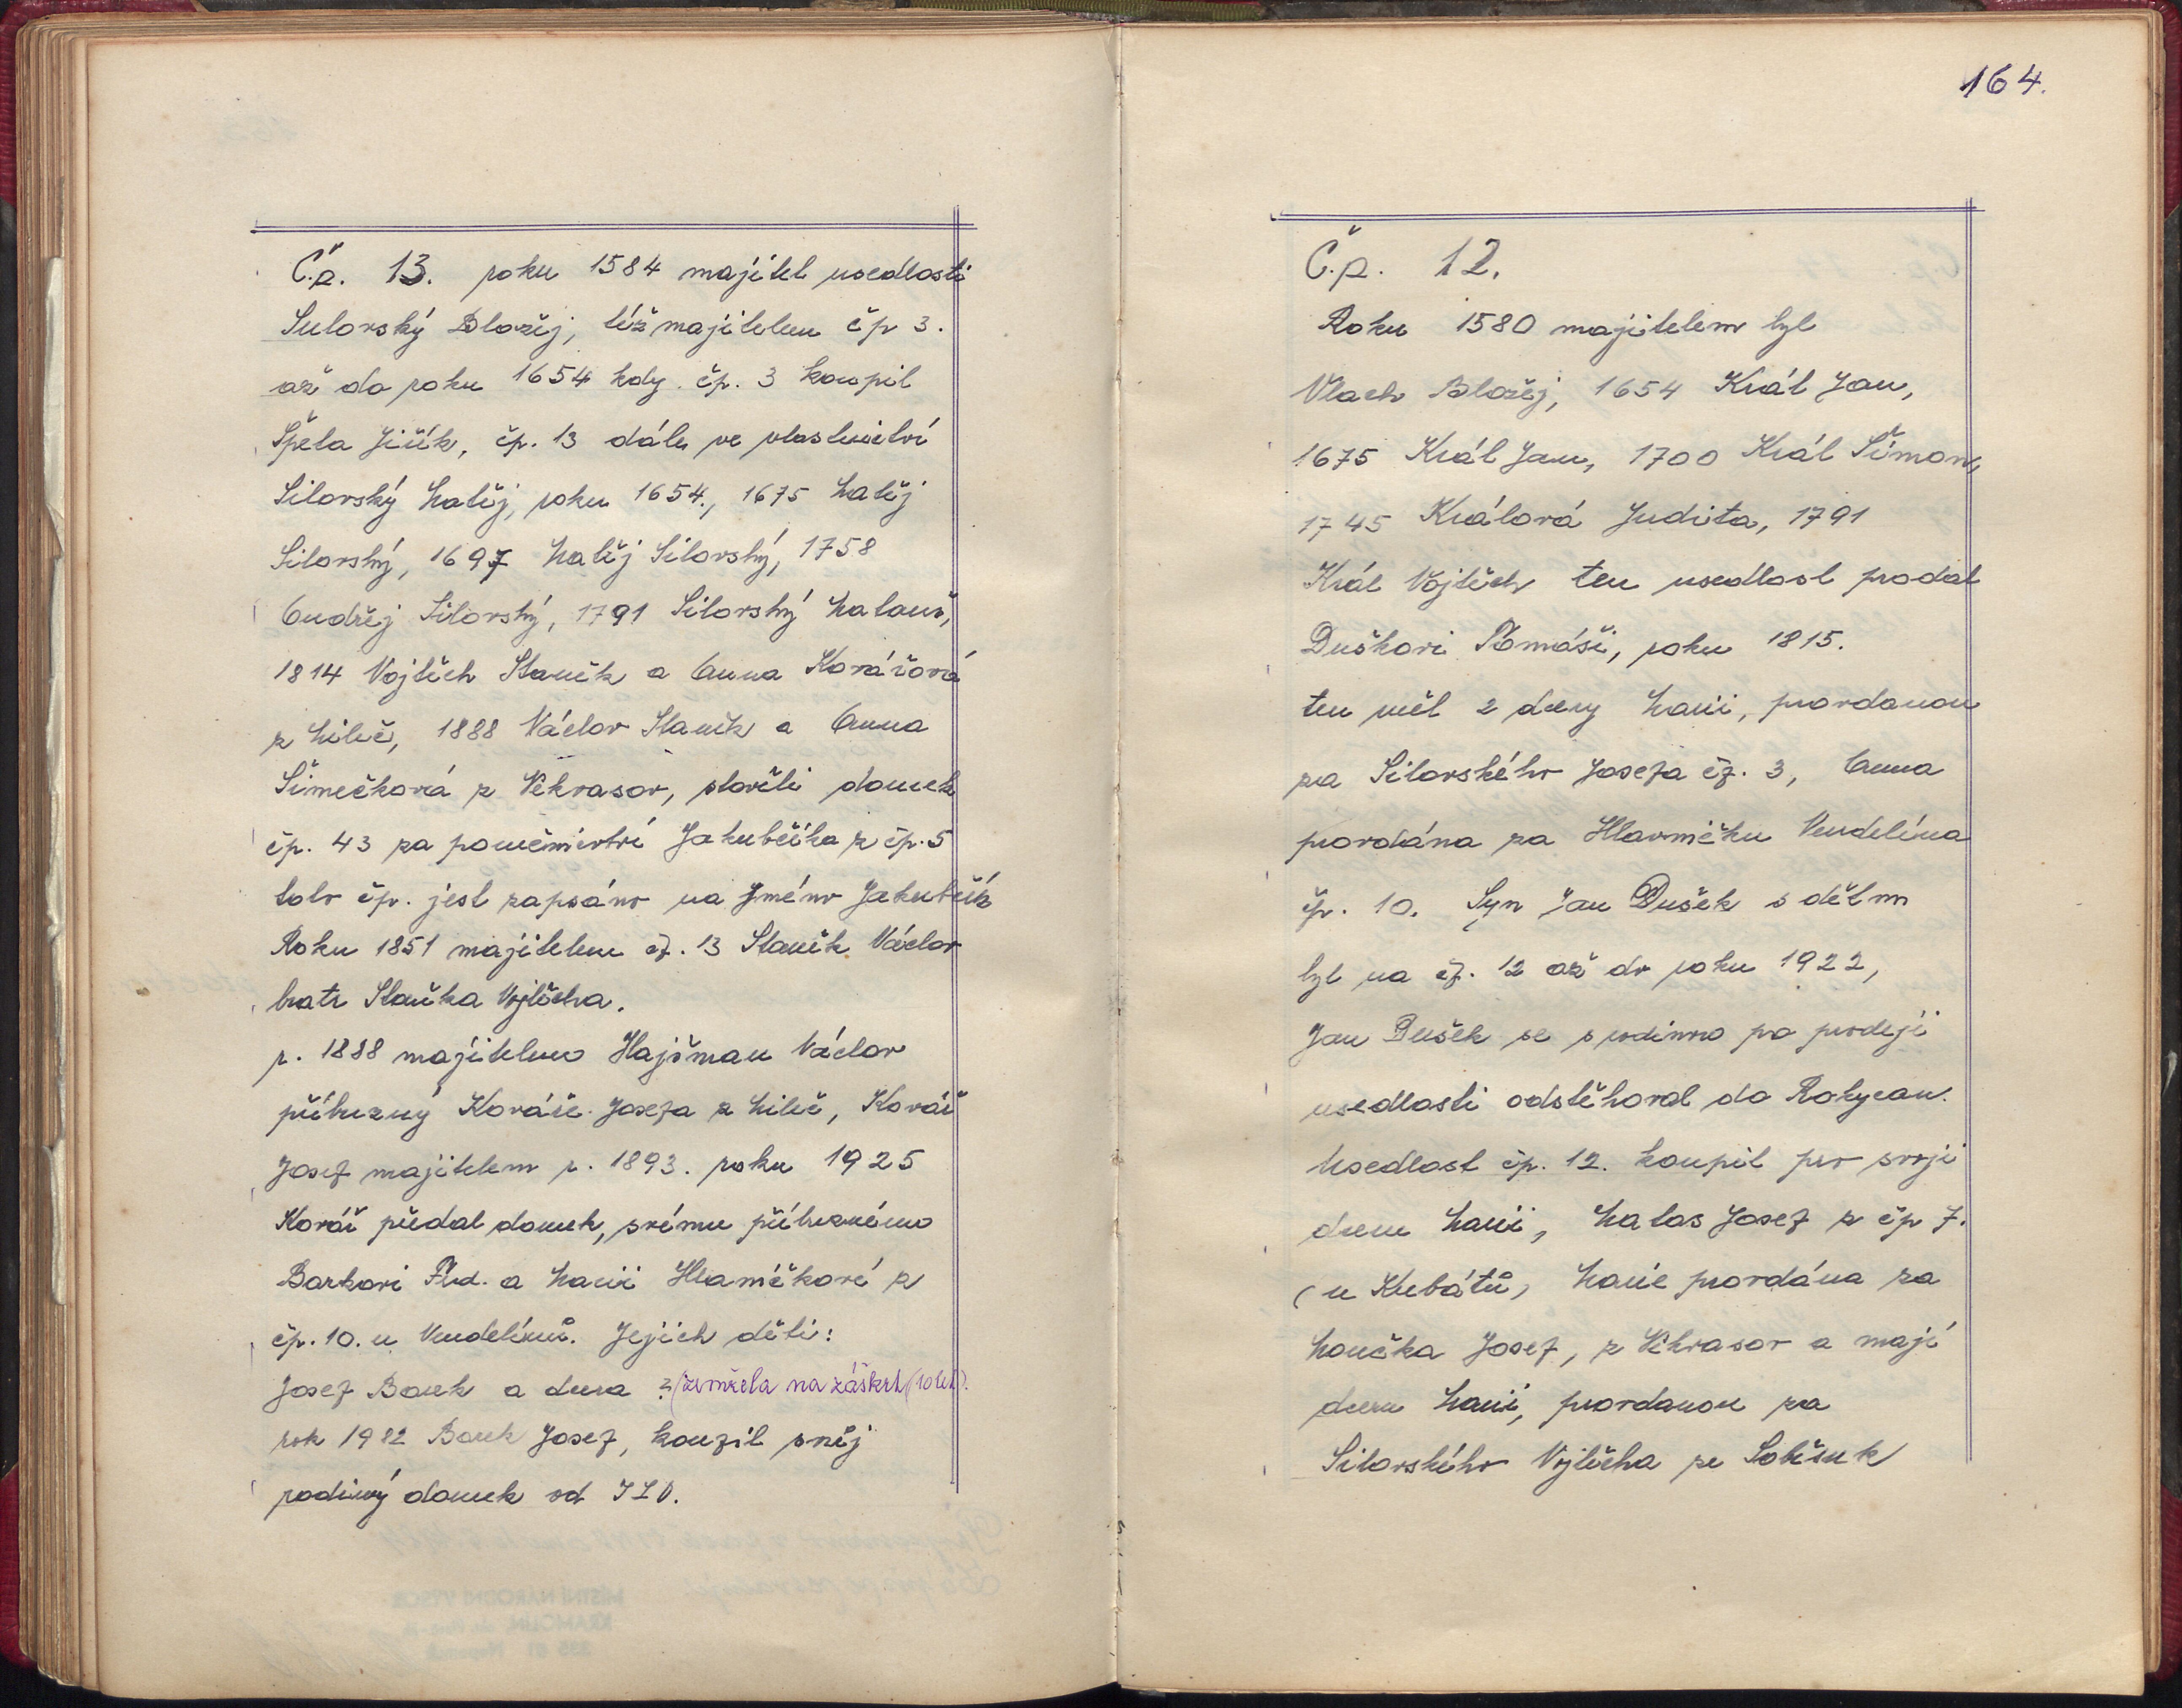 Č.p. 13. roku 1584 majitel usedlosti
Sulovský Blažej, též majitelem čp 3.
až do roku 1654 kdy čp. 3 koupil
Špela Jiřík, čp. 13 dále ve vlastnictví
Silovský Matěj, roku 1654., 1675 Matěj
Silovský, 1697 Matěj Silovský, 1758
Ondřej Silovský, 1791 Silovský Matouš,
1814 Vojtěch Staněk a Anna Kovářová
z Mileč, 1888 Václav Staněk a Anna
Šimečková z Nekvasov, stavěli domek
čp. 43 za poručnictví Jakubčíka z čp. 5
toto čp. jest zapsáno na jméno Jakubčík
Roku 1851 majitelem čp. 13 Staněk Václav
bratr Staňka Vojtěcha.
r. 1888 majitelem Hajšman Václav
příbuzný Kováře Josefa z Mileč, Kovář
Josef majitelem r. 1893. roku 1925
Kovář předal domek, svému příbuznému
Barkovi Ferd. a Marii Hlavničkové z
čp. 10. u Vendelínů. Jejich děti:
Josef Barek a dcera ? (zemřela na záškrt (10 let).
rok 1982 Barek Josef, koupil svůj
rodinný domek od JZD.
164.
Č.p. 12.
Roku 1580 majitelem byl
Vlach Blažej, 1654 Král Jan,
1675 Král Jan, 1700 Král Šimon,
1745 Králová Judita, 1791
Král Vojtěch ten usedlost prodal
Duškovi Tomáši, roku 1815.
ten měl 2 dcery Marii, provdanou
za Silovského Josefa čp. 3, Anna
provdána za Hlavničku Vendelína
čp. 10. Syn Jan Dušek s dětmi
byl na čp. 12 až do roku 1922,
Jan Dušek se s rodinou po prodeji
usedlosti odstěhoval do Rokycan.
Usedlost čp. 12. koupil pro svoji
dceru Marii, Malas Josef z čp 7.
(u Kubátů) Marie provdána za
Houčka Josef, z Nekvasov a mají
dceru Marii, provdanou za
Silovského Vojtěcha ze Soběsuk